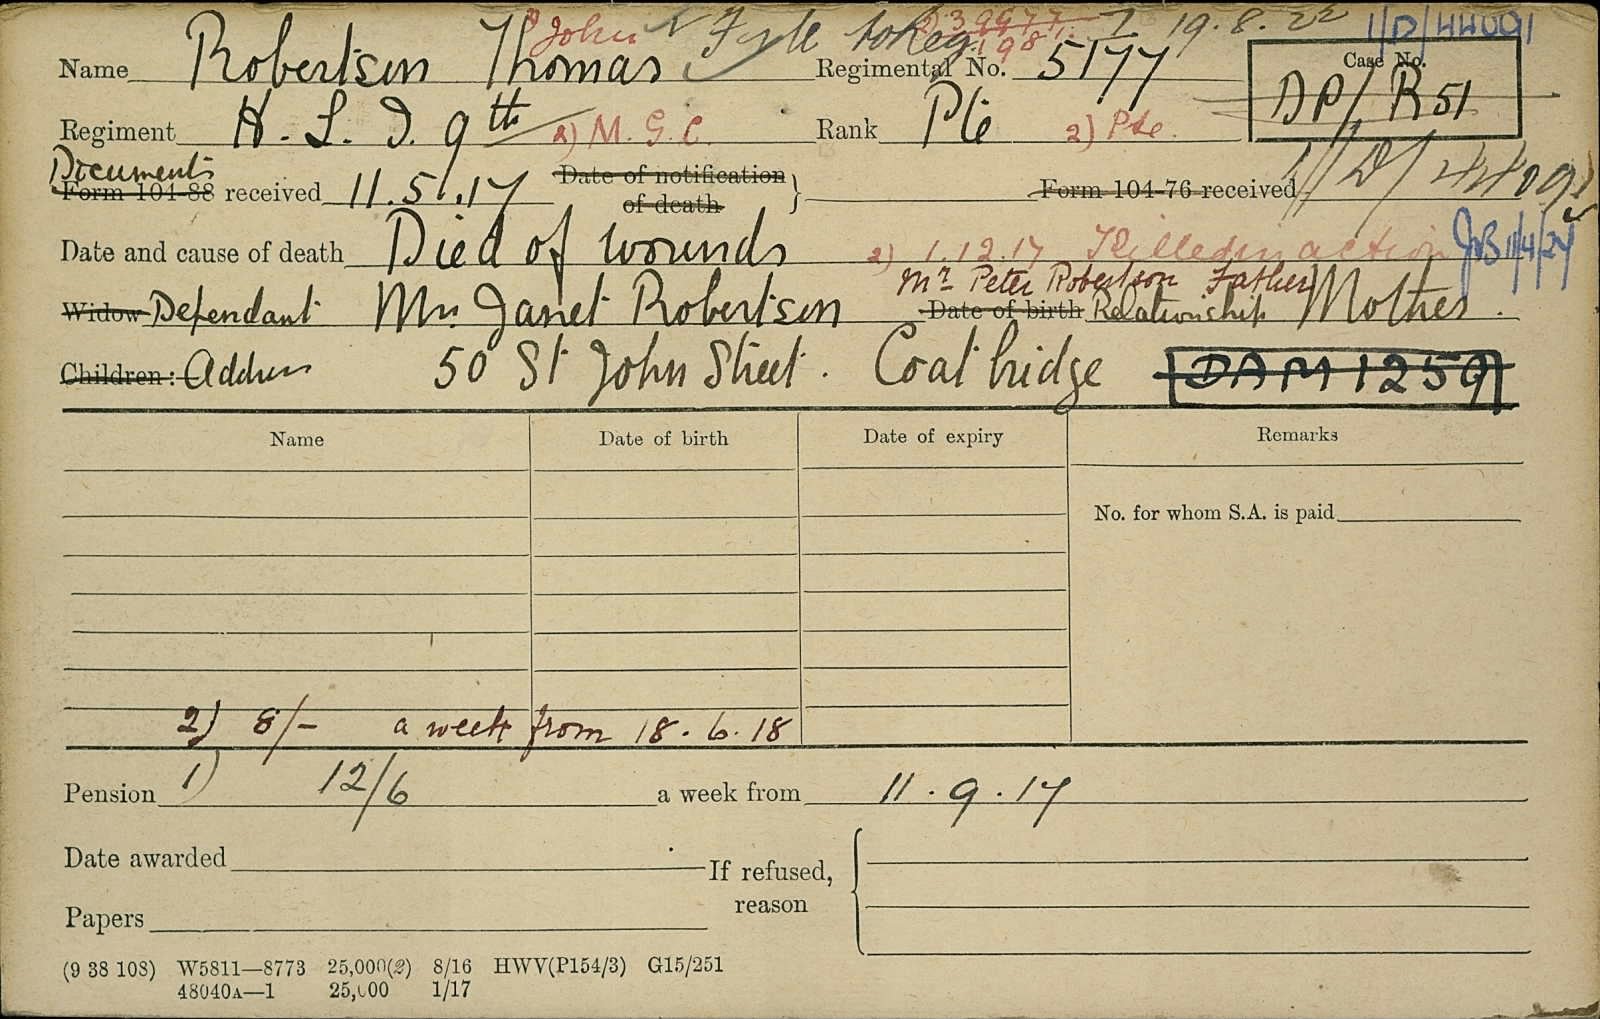 2) John File to Reg. 2) 39977 7. 19.8.22 1/D/44091
Name Robertson Thomas Regimental No. 198 5177 Case No.
DP/R51
Regiment H. L. I. 9th 2) M. G. C. Rank Pte 2) Pte.
Documents
Form 104-88 received 11.5.17 Date of notification of death } Form 104-76 received 1/D/44091
Date and cause of death Died of wounds 2) 1.12.17 Killed in action JB 11/4/24
Mr. Peter Robertson Father
Widow Dependant Mrs Janet Robertson Date of birth Relationship Mother.
Children: Address 50 St John Street. Coatbridge DAM 1259
Name Date of birth Date of expiry Remarks
No. for whom S.A. is paid
2) 8/- a week from 18.6.18
Pension 1) 12/6 a week from 11.9.17
Date awarded If refused,
reason
Papers
(9 38 108) W5811—8773 25,000(2) 8/16 HWV(P154/3) G15/251
48040A—1 25,000 1/17